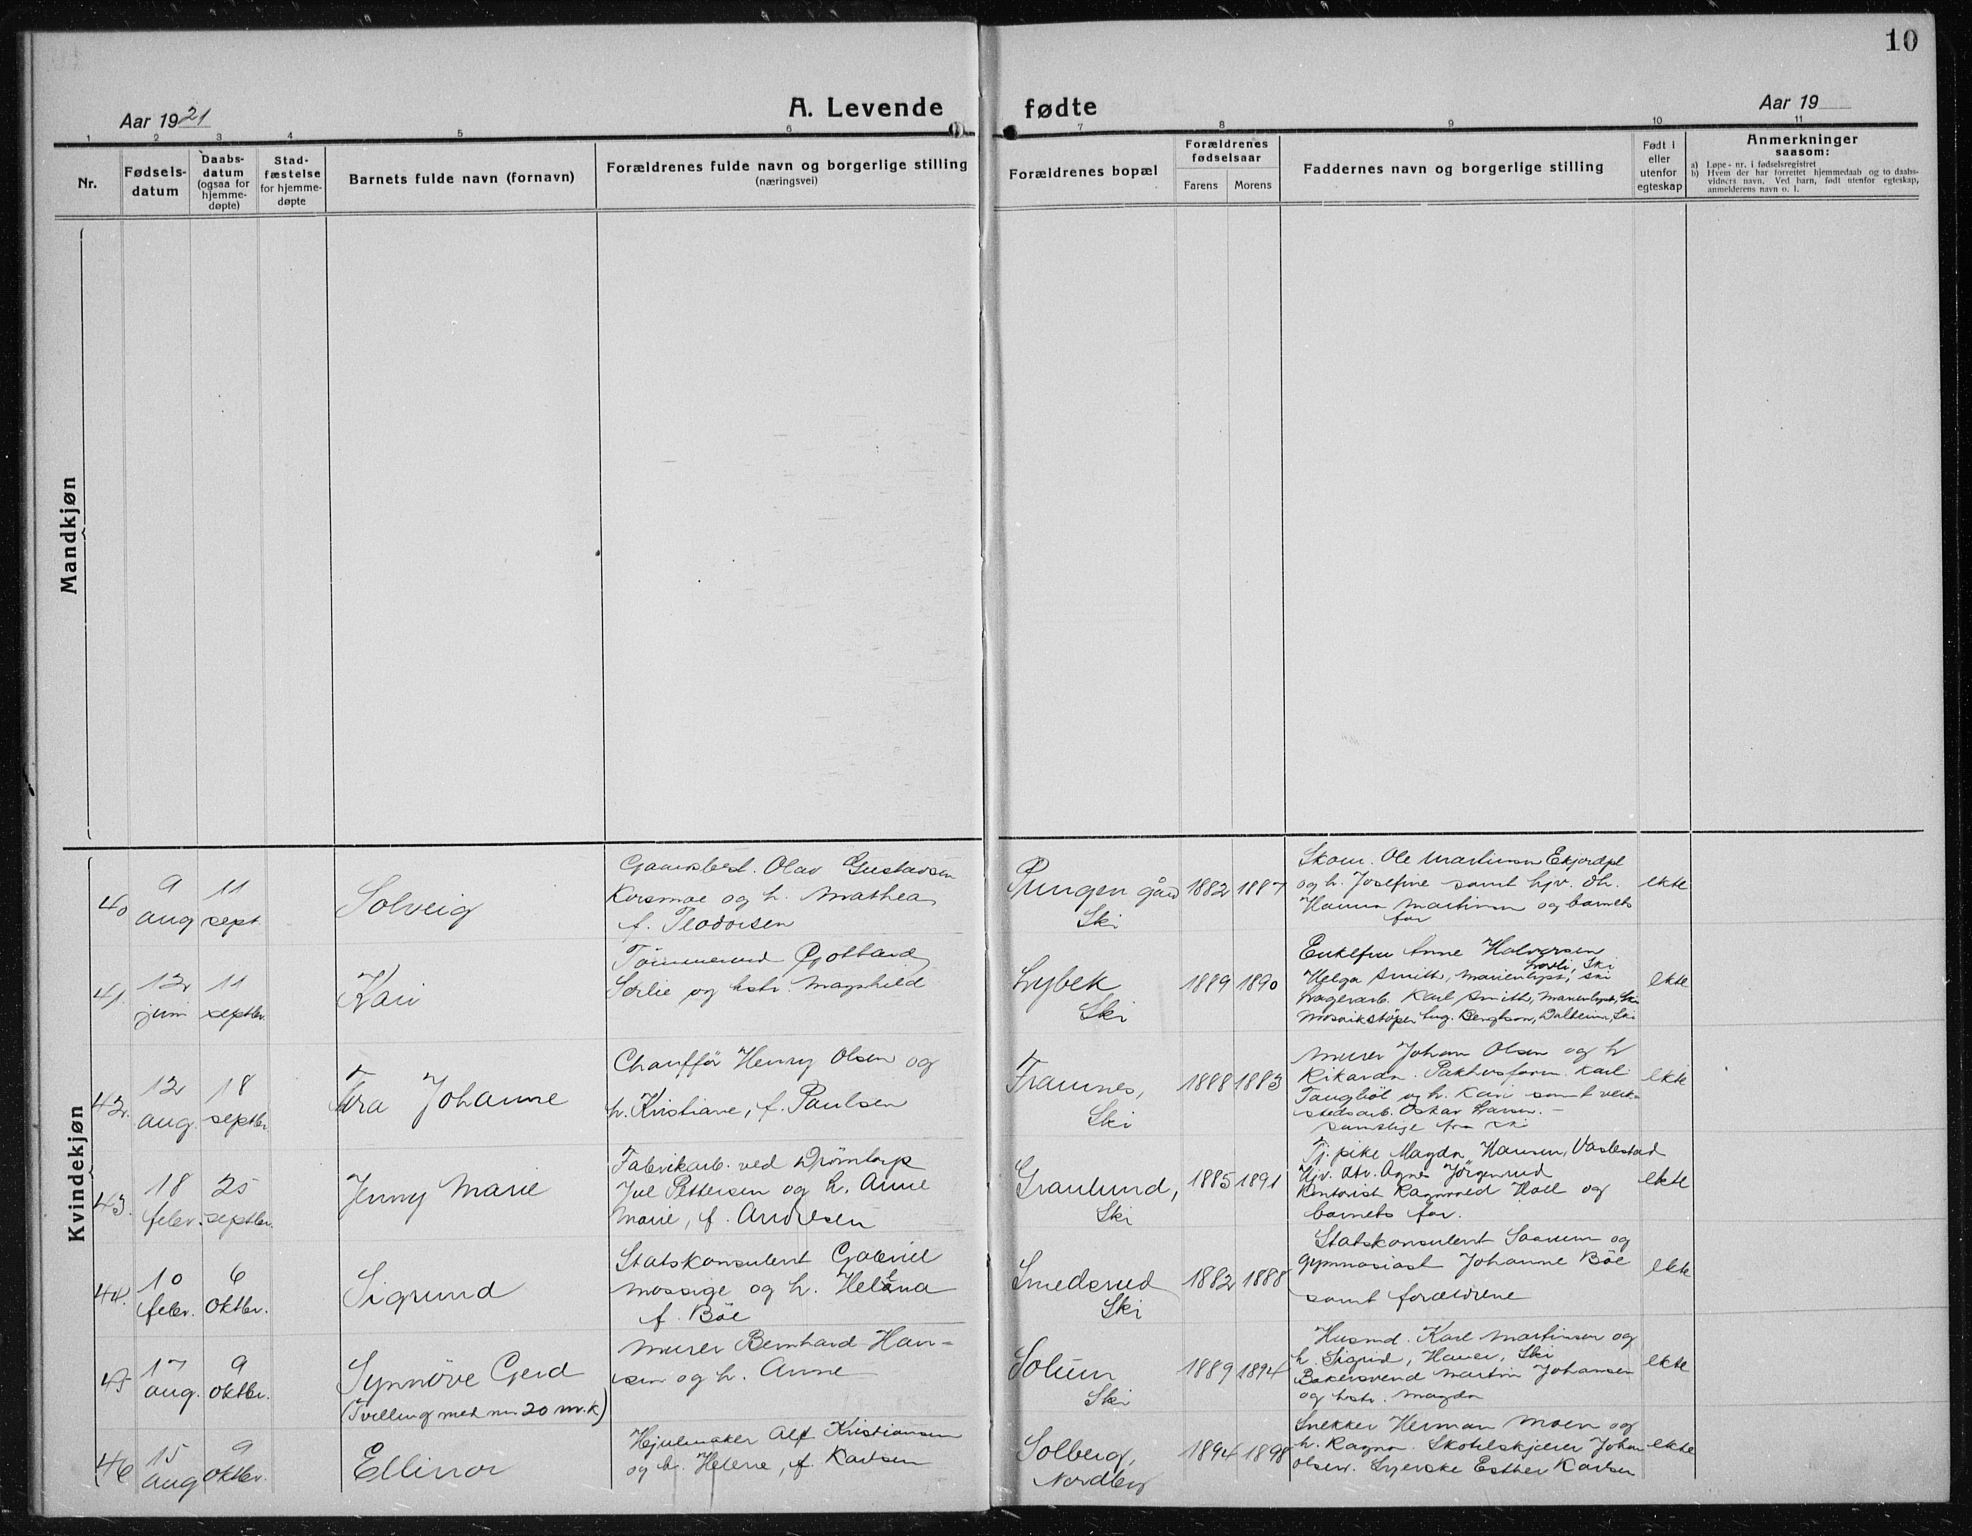 10
Aar 1921
A. Levende fødte
Aar 19
1 2 3 4 5 6 7 8 9 10 11
Nr.
Fødsels-
datum
Daabs-
datum
(ogsaa for
hjemme-
døpte)
Stad-
fæstelse
for hjemme-
døpte
Barnets fulde navn (fornavn)
Forældrenes fulde navn og borgerlige stilling
(næringsvei)
Forældrenes bopæl
Forældrenes
fødselsaar
Farens Morens
Faddernes navn og borgerlige stilling
Født i
eller
utenfor
egteskap
Anmerkninger
saasom:
a) Løpe-nr. i fødselsregistret
b) Hvem der har forrettet hjemmedaab og to daabs-
vidners navn. Ved barn, født utenfor egteskap,
anmelderens navn o. l.
Mandkjøn
Kvindekjøn
40
9
aug
11
sept.
Solveig
Gaardsbest. Olav Gustavsen
Korsmoe og h. Mathea
f. Teodorsen
Pungen gård
Ski
1882 1887
Skom. Ole Martinsen
og h. Josefine samt hjv. dtr.
Hanna Martinsen og barnets
far
ekte
41.
12
juni
11
septbr.
Kari
Tømmermand Gotthard
Sørlie og hstr Magnhild
Lybek
Ski
1889 1890
Enkefru Anne Halvorsen
Løvli, Ski
Helga Smith, Marienlyst, Ski
Lagerarb. Karl Smith, Marienlyst, Ski
Mosaikstøper Aug. Bengtson, Dalheim, Ski
ekte
42.
12
aug.
18
septbr.
Tora Johanne
Chauffør Henry Olsen og
h. Kristiane, f. Paulsen
Framnes,
Ski
1888 1883
Murer Johan Olsen og h
Rikarda. Pakhusform. Karl
Taugbøl og h. Kari samt verk-
stedsarb. Oskar Larsen. -
samtlige fra Ski
ekte
43.
18
febr.
25
septbr.
Jenny Marie
Fabrikarb. ved Drømtorp
Juel Pettersen og h. Anne
Marie, f. Andresen
Granlund,
Ski
1885 1891
Tj. pike Magda Hansen, Vaslestad
Hjv. dtr. Agnes Jørgensrud
Kontorist Ragnvald Hoel og
barnets far.
ekte
44.
10
febr.
6
oktbr.
Sigrund
Statskonsulent Gabriel
Mossige og h. Helena
f. Böe
Smedsrud
Ski
1882 1888
Statskonsulent Saanum og
gymnasiast Johanne Böe
samt forældrene
ekte
45
17
aug.
9
oktbr.
Synnöve Gerd
(Tvilling med nr 20 m.k)
Murer Bernhard Han-
sen og h. Anne
Solum
Ski
1889 1894
Husmd. Karl Martinsen og
h. Sigrid, Hauer, Ski
Bakersvend Martin Johansen
og hstr. Magda
ekte
46
15
aug
9
oktbr.
Ellinor
Hjulmaker Alf Kristiansen
og h. Helene, f. Karlsen
Solberg,
Nordby
1894 1898
Snekker Herman Moen og
h. Ragna. Skotilskjærer Johan
Olsen. Syerske Esther Karlsen
ekte